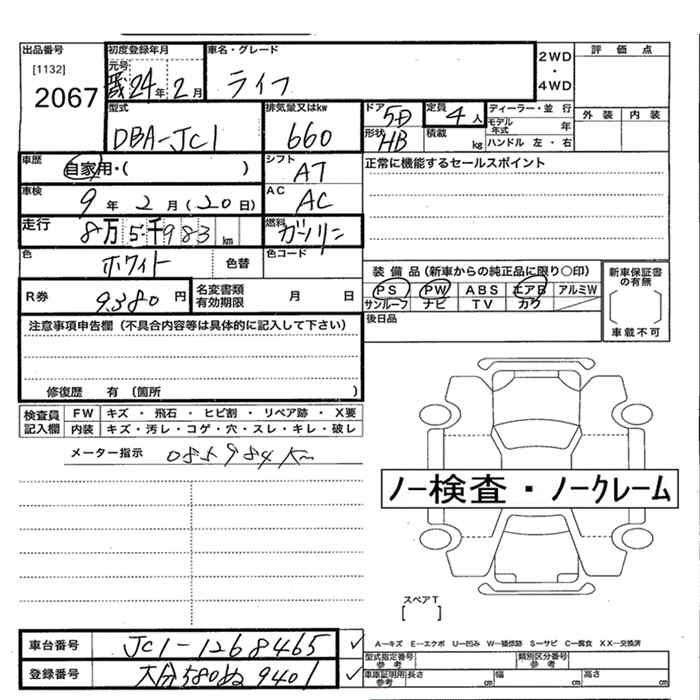 出品番号 初度登録年月 車名・グレード 評価点
[1132] 元号 ライフ 2WD・4WD
2067 24年 2月 外装 内装
型式 排気量又はkw ドア 定員 ディーラー・並行
DBA-JC1 660 5D 4人 モデル年式 年
形状 HB 積載 kg ハンドル 左・右
車歴 自家用・( ) シフト AT 正常に機能するセールスポイント
車検 9年 2月 (20日) AC AC
走行 8万5千983km 燃料 ガソリン
色 ホワイト 色替 色コード
装備品(新車からの純正品に限り○印) 新車保証書の有無
R券 9,380円 名変書類有効期限 月 日 PS PW ABS エアB アルミW
サンルーフ ナビ TV カワ
注意事項申告欄(不具合内容等は具体的に記入して下さい) 後日品 車載不可
修復歴 有(箇所 )
検査員記入欄 FW キズ・飛石・ヒビ割・リペア跡・X要
内装 キズ・汚レ・コゲ・穴・スレ・キレ・破レ
メーター指示 085984Km
ノー検査・ノークレーム
スペアT
[ ]
A-キズ E-エクボ U-凹み W-補修跡 S-サビ C-腐食 XX-交換済
車台番号 JC1-1268465 ✓ 型式指定番号 参考 類別区分番号 参考
登録番号 大分580ぬ9401 ✓ 車庫証明用 参考 長さ cm 幅 cm 高さ cm